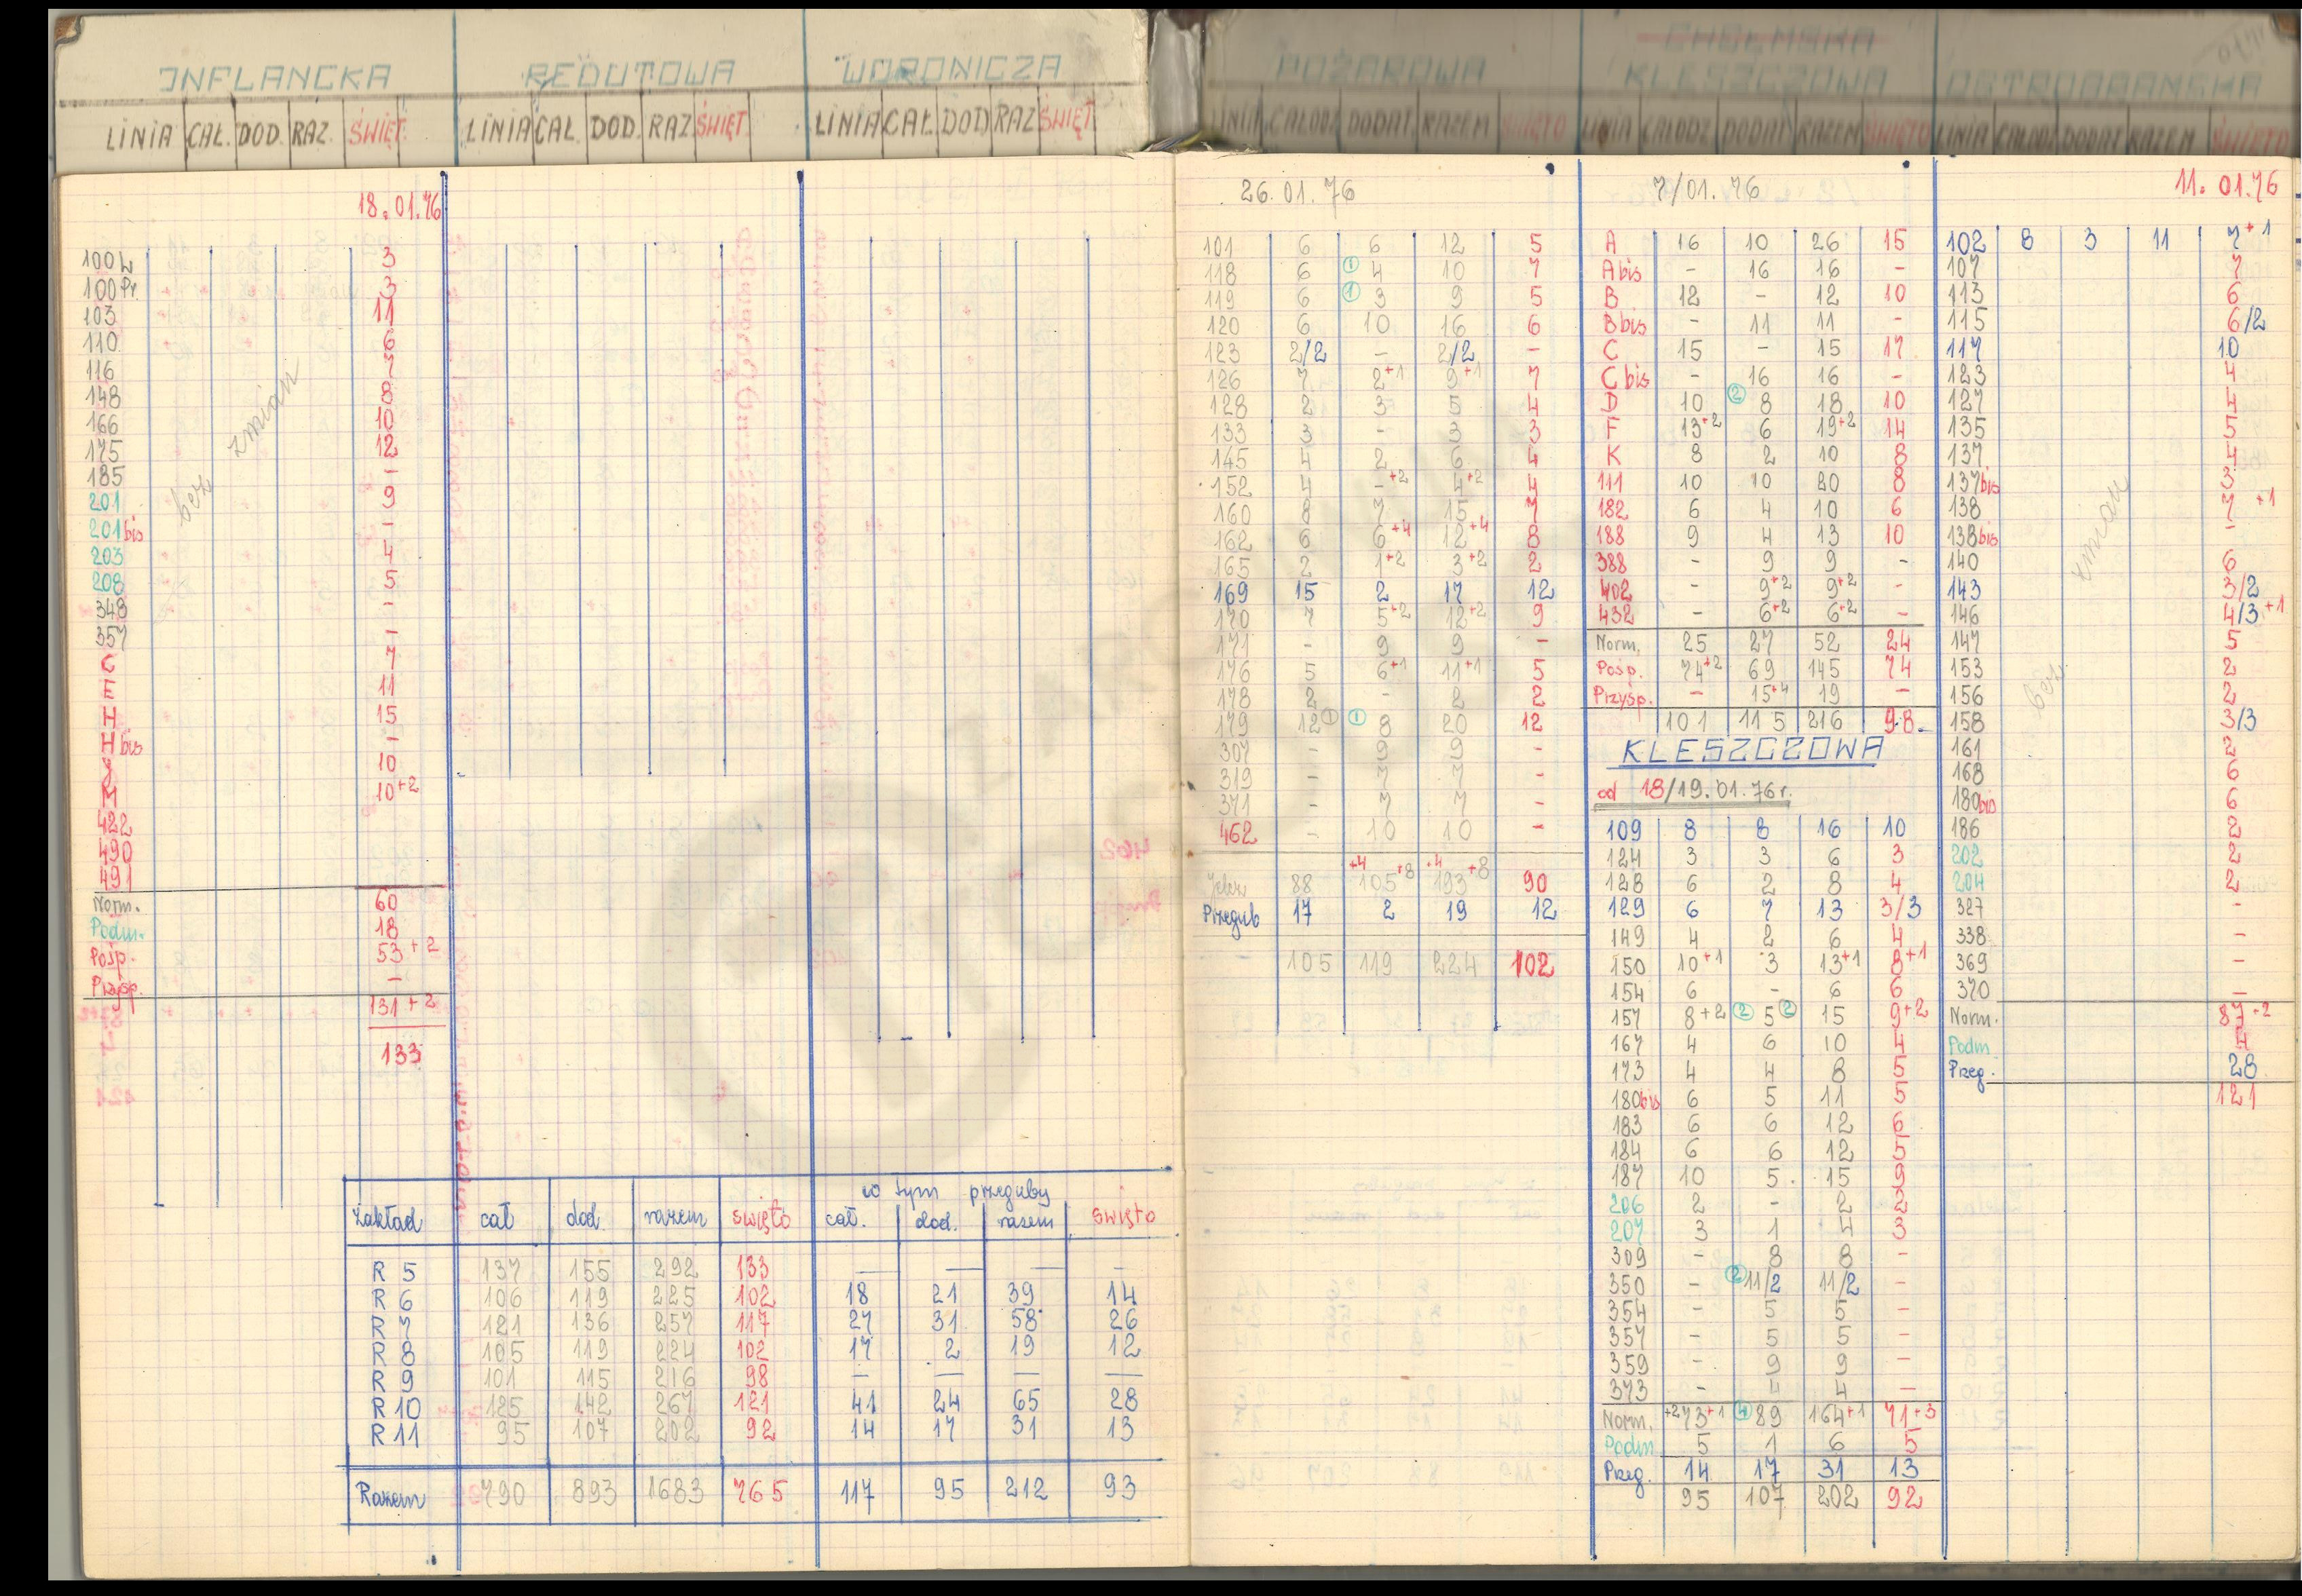 INFLANCKA
LINIA CAŁ. DOD. RAZ. ŚWIĘT.
18.01.76
100L 3
100Pr. 3
103 11
110 6
116 7
148 8
166 10
175 12
185 -
201 9
201bis -
203 4
208 5
348 -
357 -
C 7
E 11
H 15
H bis -
J 10
M 10+2
422
490
491
bez zmian
Norm. 60
Podm. 18
Pośp. 53+2
Przysp. -
131+2
133
REDUTOWA
LINIA CAŁ. DOD. RAZ ŚWIĘT.
WORONICZA
LINIA CAŁ. DOD RAZ ŚWIĘT
w tym przeguby
Zakład cał dod. razem święto cał. dod. razem święto
R 5 137 155 292 133 — — — —
R 6 106 119 225 102 18 21 39 14
R 7 121 136 257 117 27 31 58 26
R 8 105 119 224 102 17 2 19 12
R 9 101 115 216 98 — — — —
R 10 125 142 267 121 41 24 65 28
R 11 95 107 202 92 14 17 31 13
Razem 790 893 1683 765 117 95 212 93
POŻAROWA
LINIA CAŁODZ DODAT. RAZEM ŚWIĘTO
26.01.76
101 6 6 12 5
118 6 ① 4 10 7
119 6 ① 3 9 5
120 6 10 16 6
123 2/2 - 2/2 -
126 7 2+1 9+1 7
128 2 3 5 4
133 3 - 3 3
145 4 2 6 4
152 4 -+2 4+2 4
160 8 7 15 7
162 6 6+4 12+4 8
165 2 1+2 3+2 2
169 15 2 17 12
170 7 5+2 12+2 9
171 - 9 9 -
176 5 6+1 11+1 5
178 2 - 2 2
179 12① ① 8 20 12
307 - 9 9 -
319 - 7 7 -
371 - 7 7 -
462 - 10 10 -
+4 +8 +4 +8
Jelcz 88 105 193 90
Przegub 17 2 19 12
105 119 224 102
CHEŁMSKA
KLESZCZOWA
LINIA CAŁODZ DODAT RAZEM ŚWIĘTO
7/01.76
A 16 10 26 15
A bis - 16 16 -
B 12 - 12 10
B bis - 11 11 -
C 15 - 15 17
C bis - 16 16 -
D 10 ② 8 18 10
F 13+2 6 19+2 14
K 8 2 10 8
111 10 10 20 8
182 6 4 10 6
188 9 4 13 10
388 - 9 9 -
402 - 9+2 9+2 -
432 - 6+2 6+2 -
Norm. 25 27 52 24
Pośp. 74+2 69 145 74
Przysp. - 15+4 19 -
101 115 216 98
KLESZCZOWA
od 18/19.01.76r.
109 8 8 16 10
124 3 3 6 3
128 6 2 8 4
129 6 7 13 3/3
149 4 2 6 4
150 10+1 3 13+1 8+1
154 6 - 6 6
157 8+2 ② 5 ② 15 9+2
167 4 6 10 4
173 4 4 8 5
180bis 6 5 11 5
183 6 6 12 6
184 6 6 12 5
187 10 5 15 9
206 2 - 2 2
207 3 1 4 3
309 - 8 8 -
350 - ② 11/2 11/2 -
354 - 5 5 -
357 - 5 5 -
359 - 9 9 -
373 - 4 4 -
Norm. +2 73+1 ④ 89 164+1 71+3
Podm 5 1 6 5
Przeg. 14 17 31 13
95 107 202 92
OSTROBRAMSKA
LINIA CAŁODZ DODAT RAZEM ŚWIĘTO
11.01.76
102 8 3 11 7+1
107 7
113 6
115 6/2
117 10
123 4
127 4
135 5
137 4
137bis 3
138 7+1
138bis -
140 6
143 3/2
146 4/3+1
147 5
153 2
156 2
158 3/3
161 2
168 6
180bis 6
186 2
202 2
204 2
327 -
338 -
369 -
370 -
bez zmian
Norm. 87+2
Podm 4
Przeg. 28
121